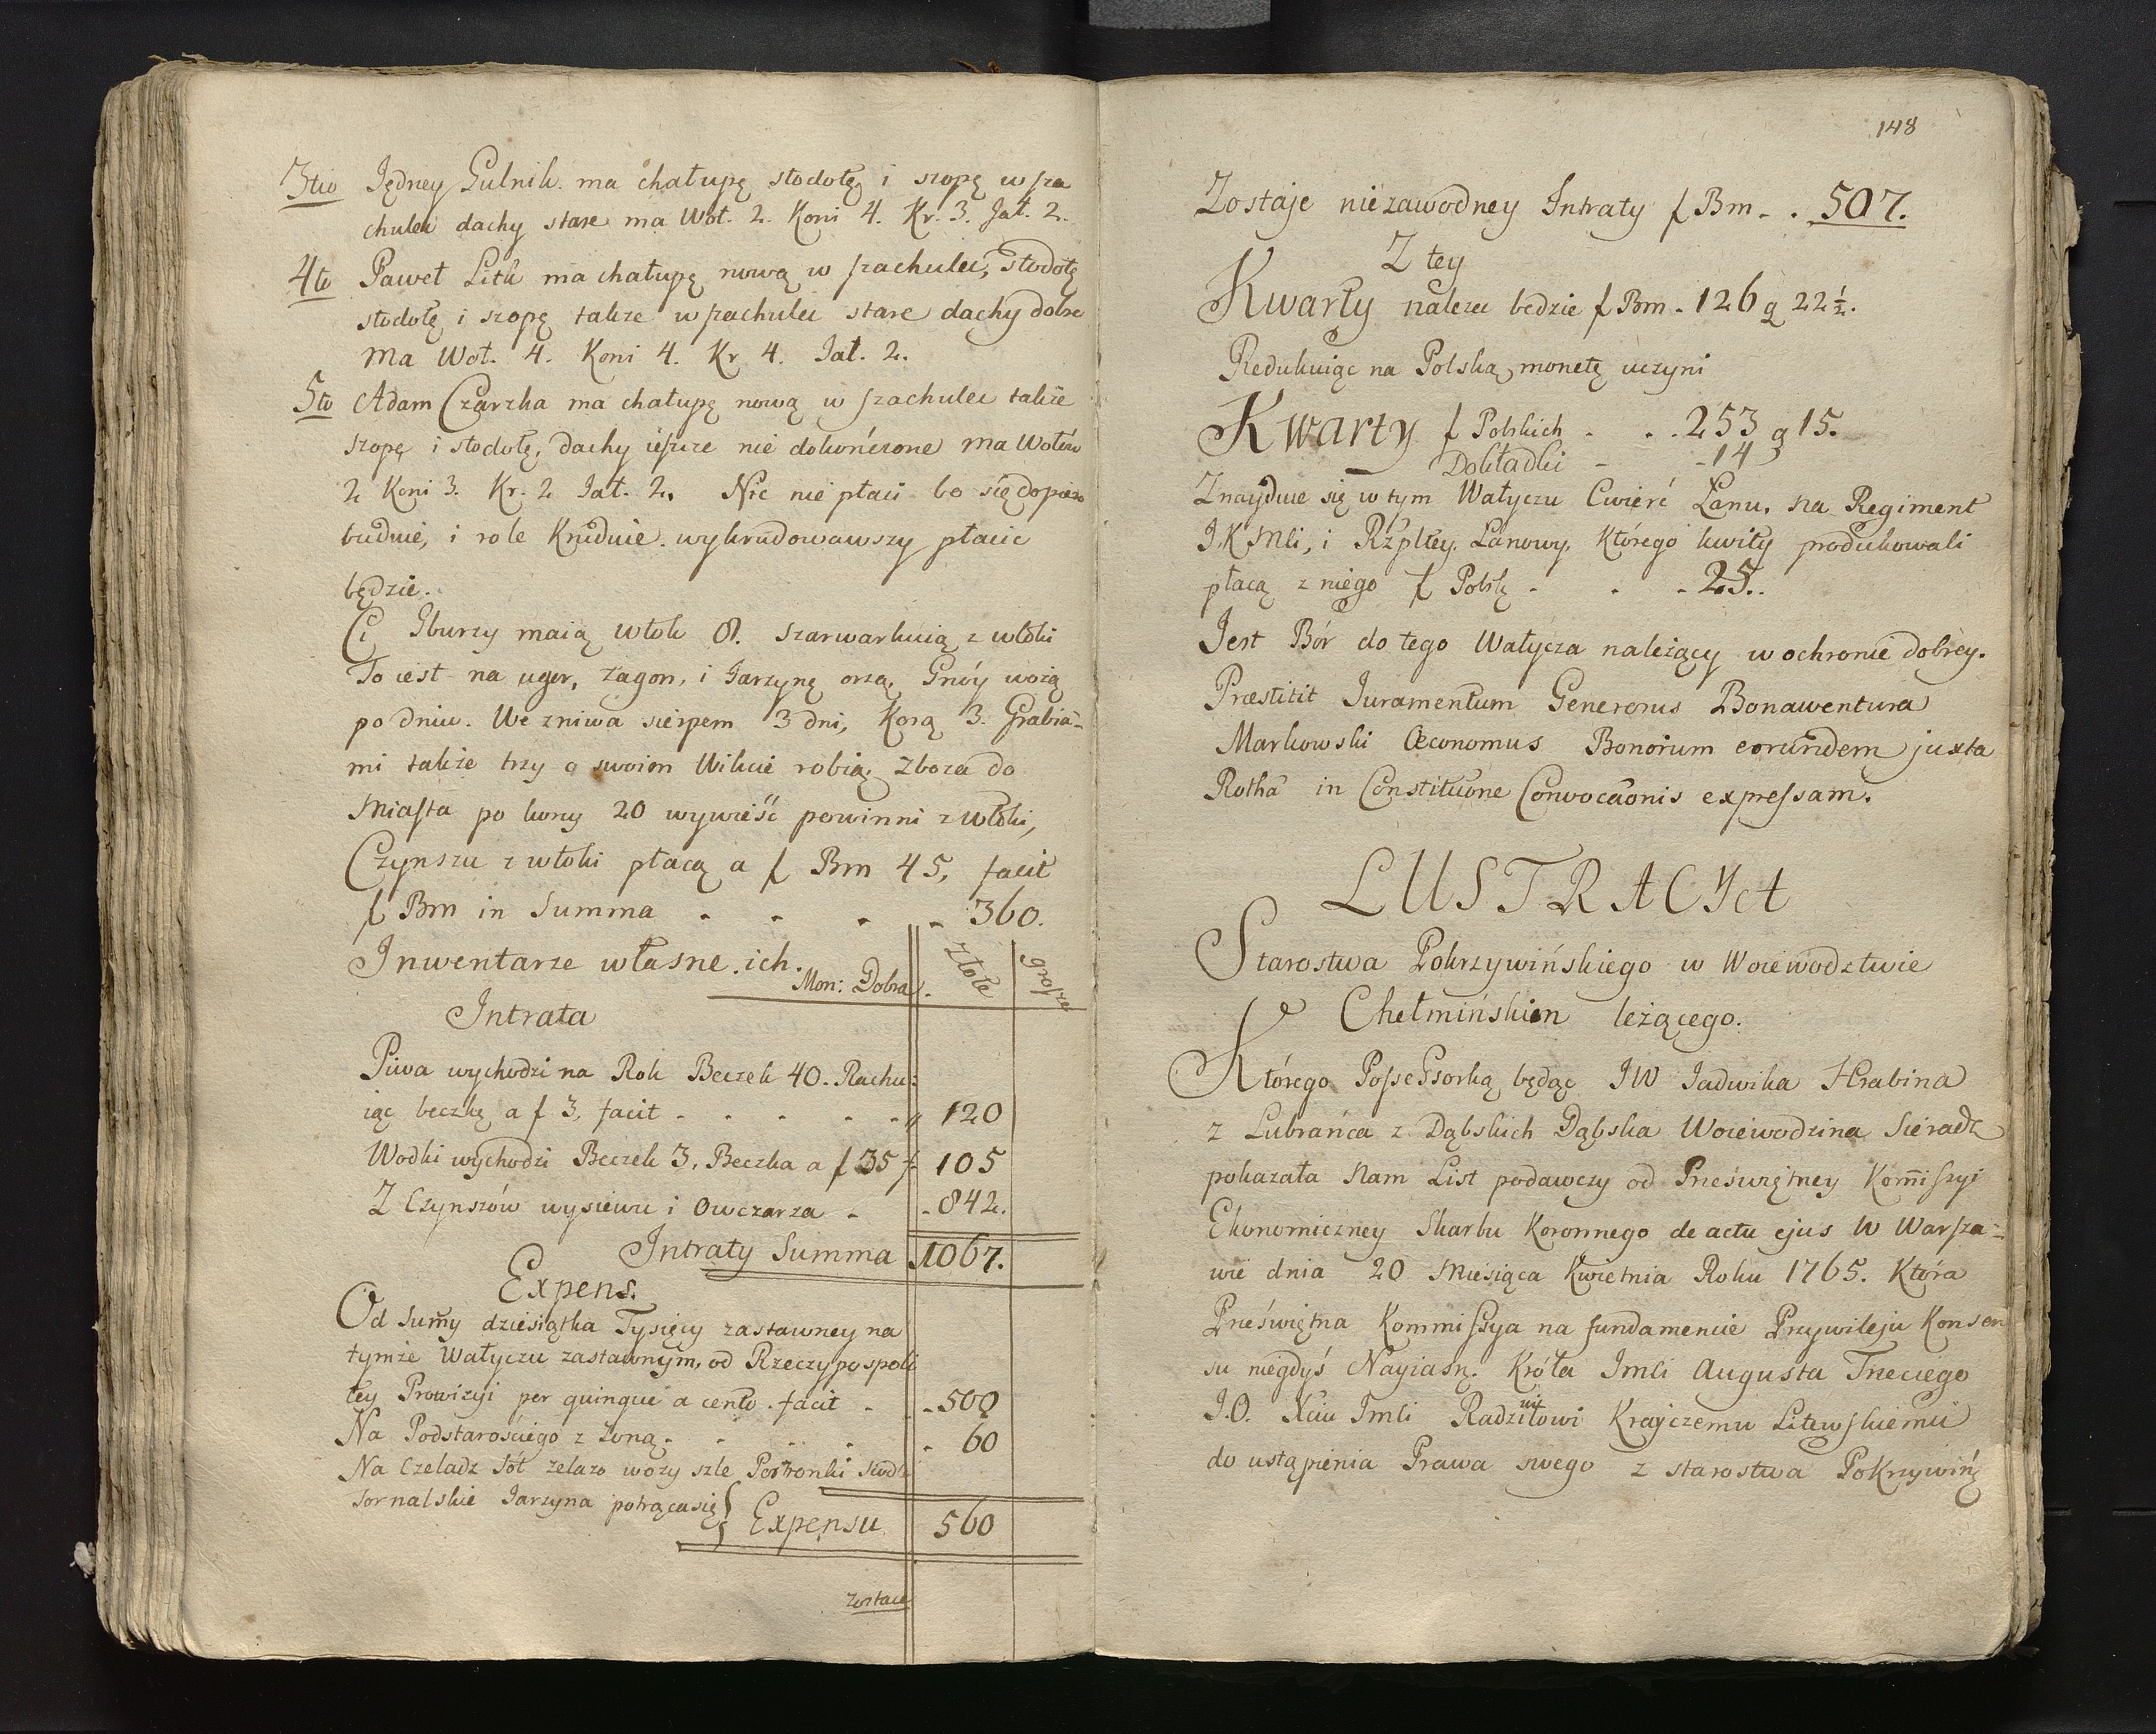 3tio Jędney Gulnik ma chałupę stodołę i szopę w sza
chulec dachy stare ma Woł. 2. Koni 4. Kr. 3. Jał. 2.
4to Paweł Litk ma chałupę nową w szachulec, stodołę
stodołę i szopę także w szachulec stare dachy dobre
Ma Woł. 4. Koni 4. Kr 4. Jał. 2.
5to Adam Czarzka ma chałupę nową w szachulec także
szopę i stodołę, dachy ieszcze nie dokończone Ma Wołów
2 Koni 3. Kr. 2 Jał. 2. Nic nie płaci bo się dopiero
buduie, i role Kruduie. wykrudowawszy płacic
będzie.
Ci Gburzy maią włok 8. szarwarkuią z włoki
To iest na ugor, zagon, i Jarzynę orzą, Gnóy wożą
po dniu. We zniwa sierpem 3 dni, Kosą 3. Grabia-
mi także trzy o swoim Wikcie robią, zboża do
Miasta po korcy 20 wywieść powinni z włoki,
Czynszu z włoki płacą a f Bm 45, facit
f Bm in Summa - - - - 360.
Inwentarze własne ich.
Mon: Dobra. Złote grosze
Intrata
Piwa wychodzi na Rok Beczek 40. Rachu:
iąc beczkę a f 3, facit - - - - - 120
Wodki wychodzi Beczek 3, Beczka a f 35 f. 105
Z Czynszów wysiewu i Owczarza - - 842.
Intraty Summa 1067.
Expens.
Od Sumy dziesiątka Tysięcy zastawney na
tymże Wałyczu zastawnym, od Rzeczypospoli
tey Prowizyi per quinque a cento. facit - - 500
Na Podstarościego z żoną - - - - 60
Na Czeladz Sól żelazo wozy szle Postronki siodł
fornalskie Jarzyna potrąca się } Expensu 560
zostaie
148
Zostaje niezawodney Intraty f Bm - . 507.
Z tey
Kwarty należeć bedzie f Bm - 126 g 22 ½.
Redukuiąc na Polską monetę uczyni
Kwarty f Polskich - . . 253 g 15.
Dokładki - - 14
Znayduie się w tym Wałyczu Cwierć Łanu, na Regiment
J.K Mci, i Rzpltey. Łanowy, Którego kwity produkowali
płacą z niego f Polskę - . - 25..
Jest Bór do tego Wałycza należący w ochronie dobrey.
Præstitit Juramentum Generosus Bonawentura
Markowski Œconomus Bonorum eorundem juxta
Rothā in Constituōne Convocaōnis expressam.
LUSTRACYA
Starostwa Pokrzywińskiego w Woiewodztwie
Chełmińskim leżącego.
Którego Possessorką będąc JW Jadwika Hrabina
z Lubrańca z Dąbskich Dąbska Woiewodzina Sieradz
pokazała Nam List podawczy od Przeświętney Kommissyi
Ekonomiczney Skarbu Koronnego de actu ejus w Warsza-
wie dnia 20 Miesiąca Kwietnia Roku 1765. Która
Przeświętna Kommissya na fundamencie Przywileju Konsen
su niegdyś Nayiasn. Króla Jmci Augusta Trzeciego
J.O. Xciu Jmci Radziwiłowi Krayczemu Litewskiemu
do ustąpienia Prawa swego z starostwa Pokrzywiń